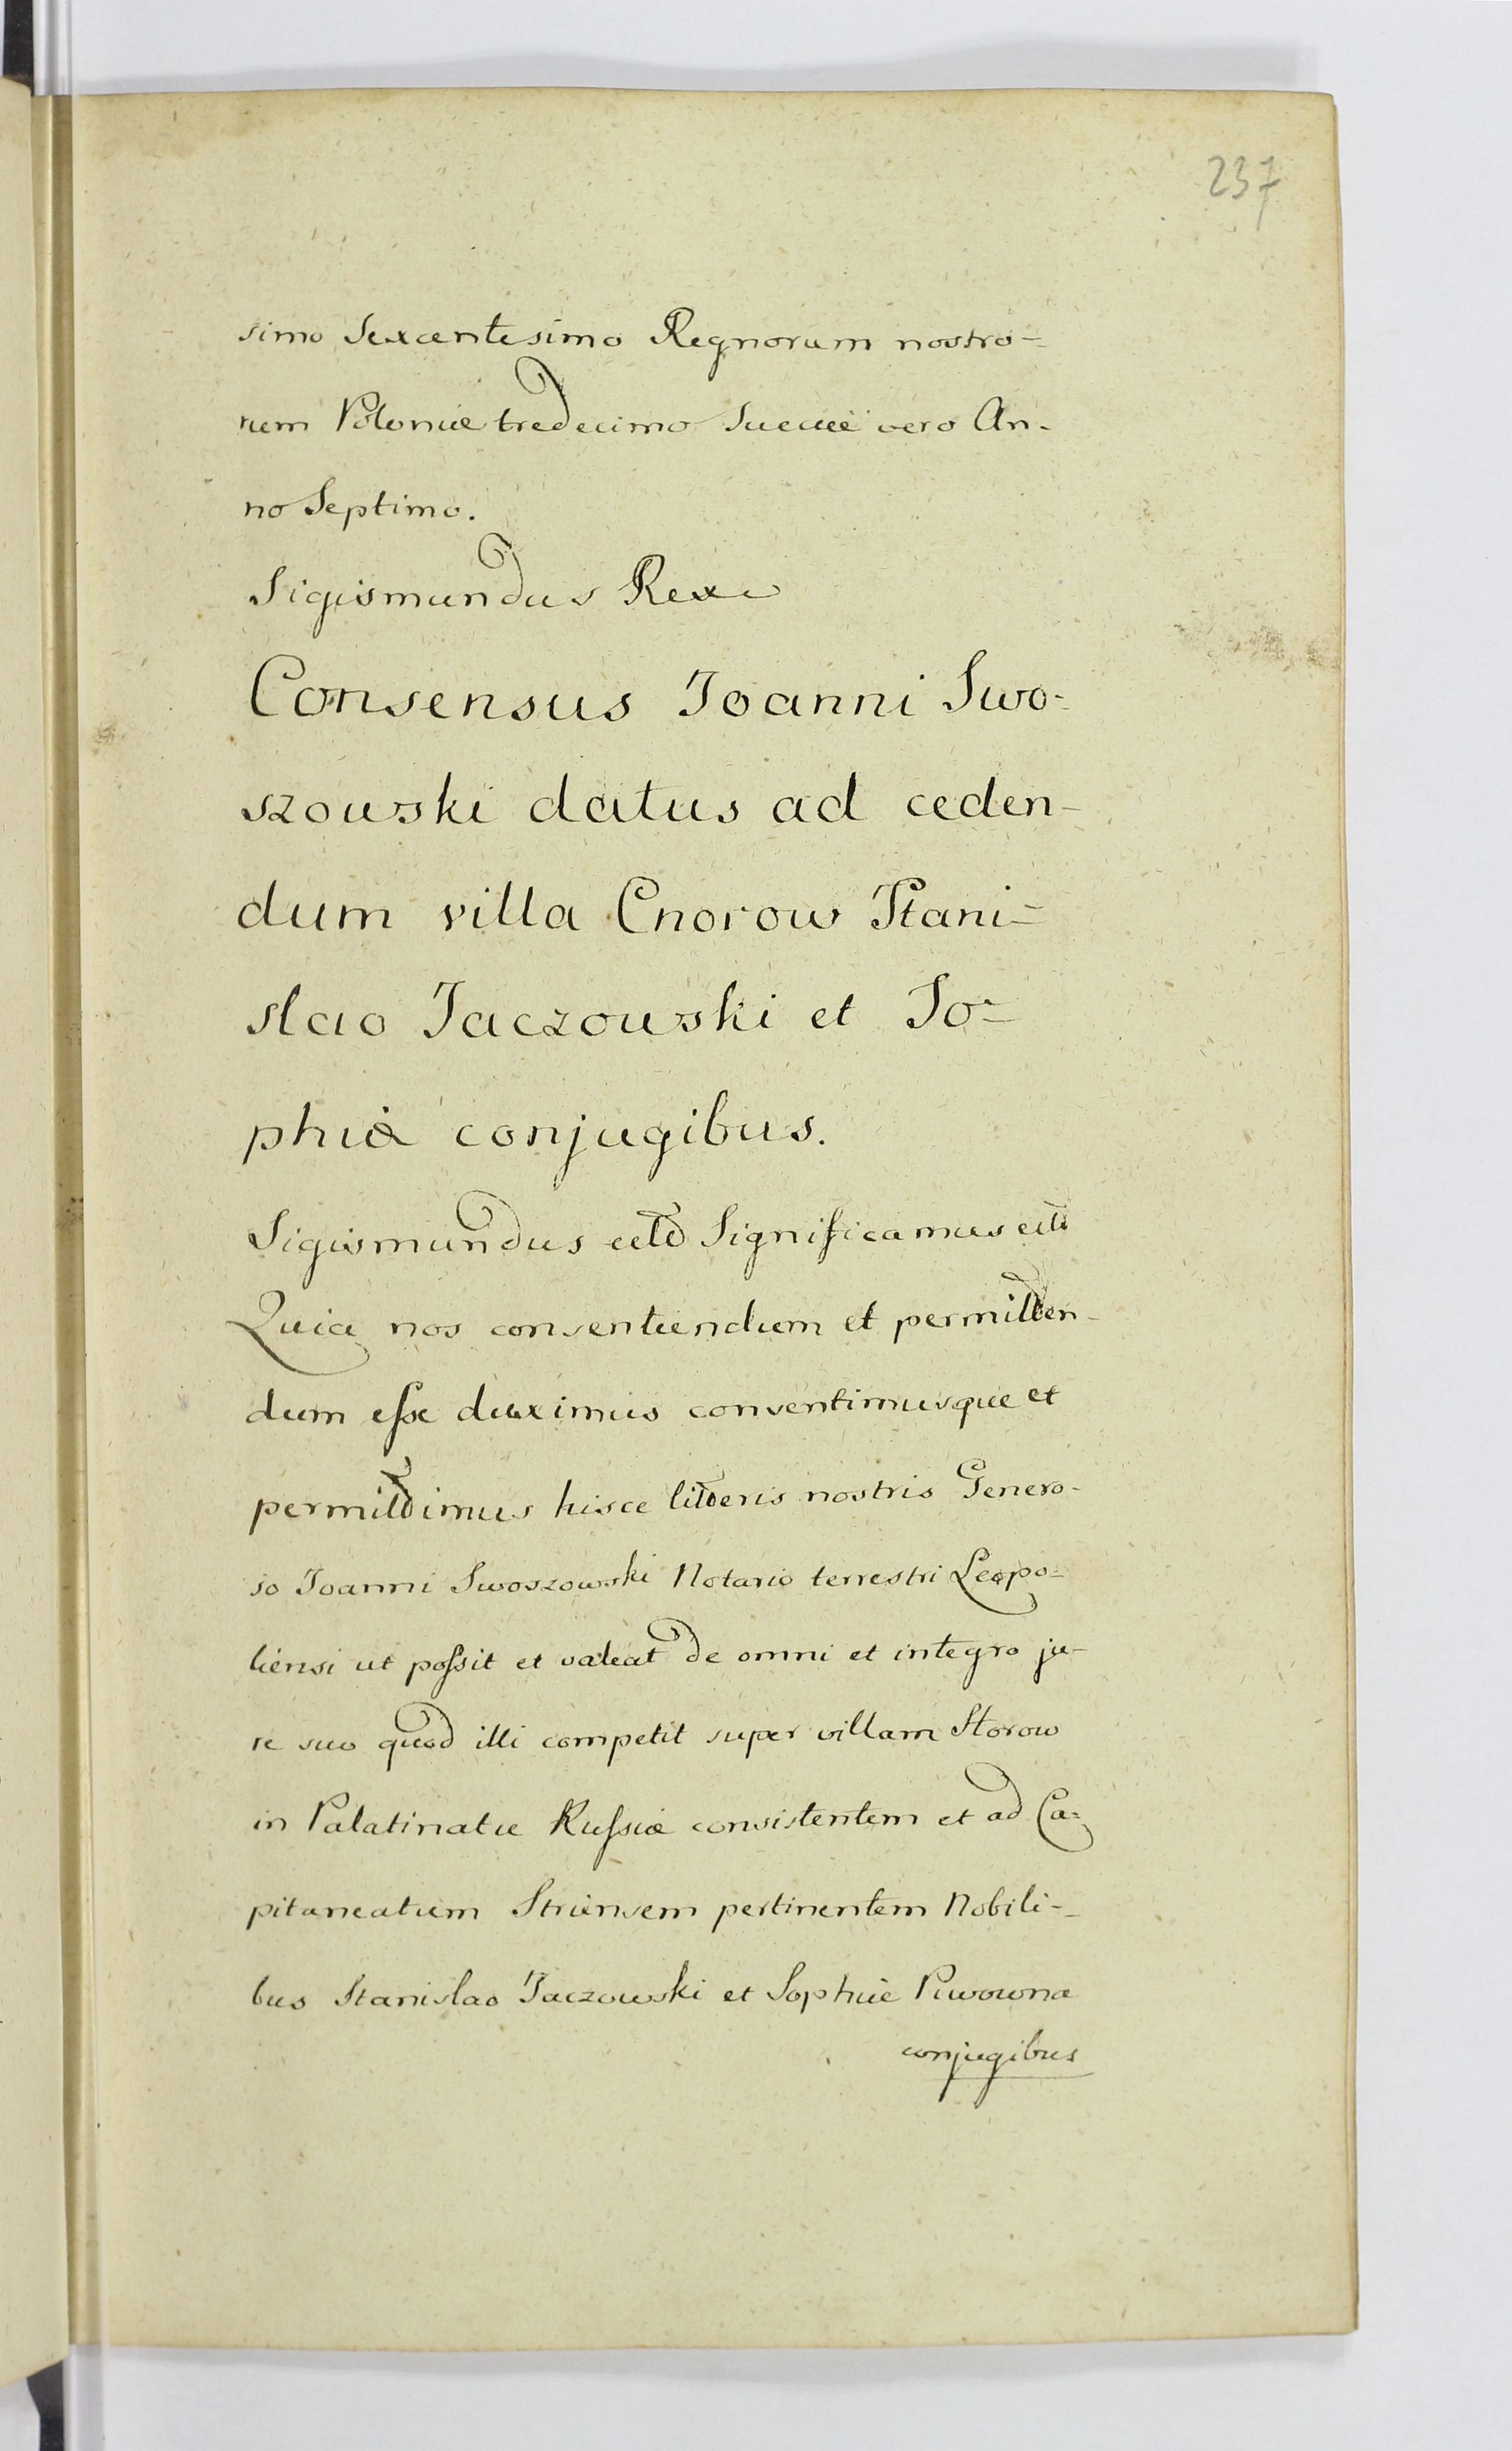 237
simo Sexcentesimo Regnorum nostro-
rum Poloniæ tredecimo Sueciæ vero An-
no Septimo.
Sigismundus Rex
Consensus Joanni Swo-
szowski datus ad ceden-
dum villa Cnorow Stani-
slao Jaczowski et So-
phiæ conjugibus.
Sigismundus ett Significamus ett
Quia nos consentiendum et permitten-
dum esse duximus consentimusque et
permittimus hisce litteris nostris Genero-
so Joanni Swoszowski Notario terrestri Leopo-
liensi ut possit et valeat de omni et integro ju-
re suo quod illi competit super villam Storow
in Palatinatu Russiæ consistentem et ad Ca-
pitaneatum Striensem pertinentem Nobili-
bus Stanislao Jaczowski et Sophiæ Piwowna
conjugibus